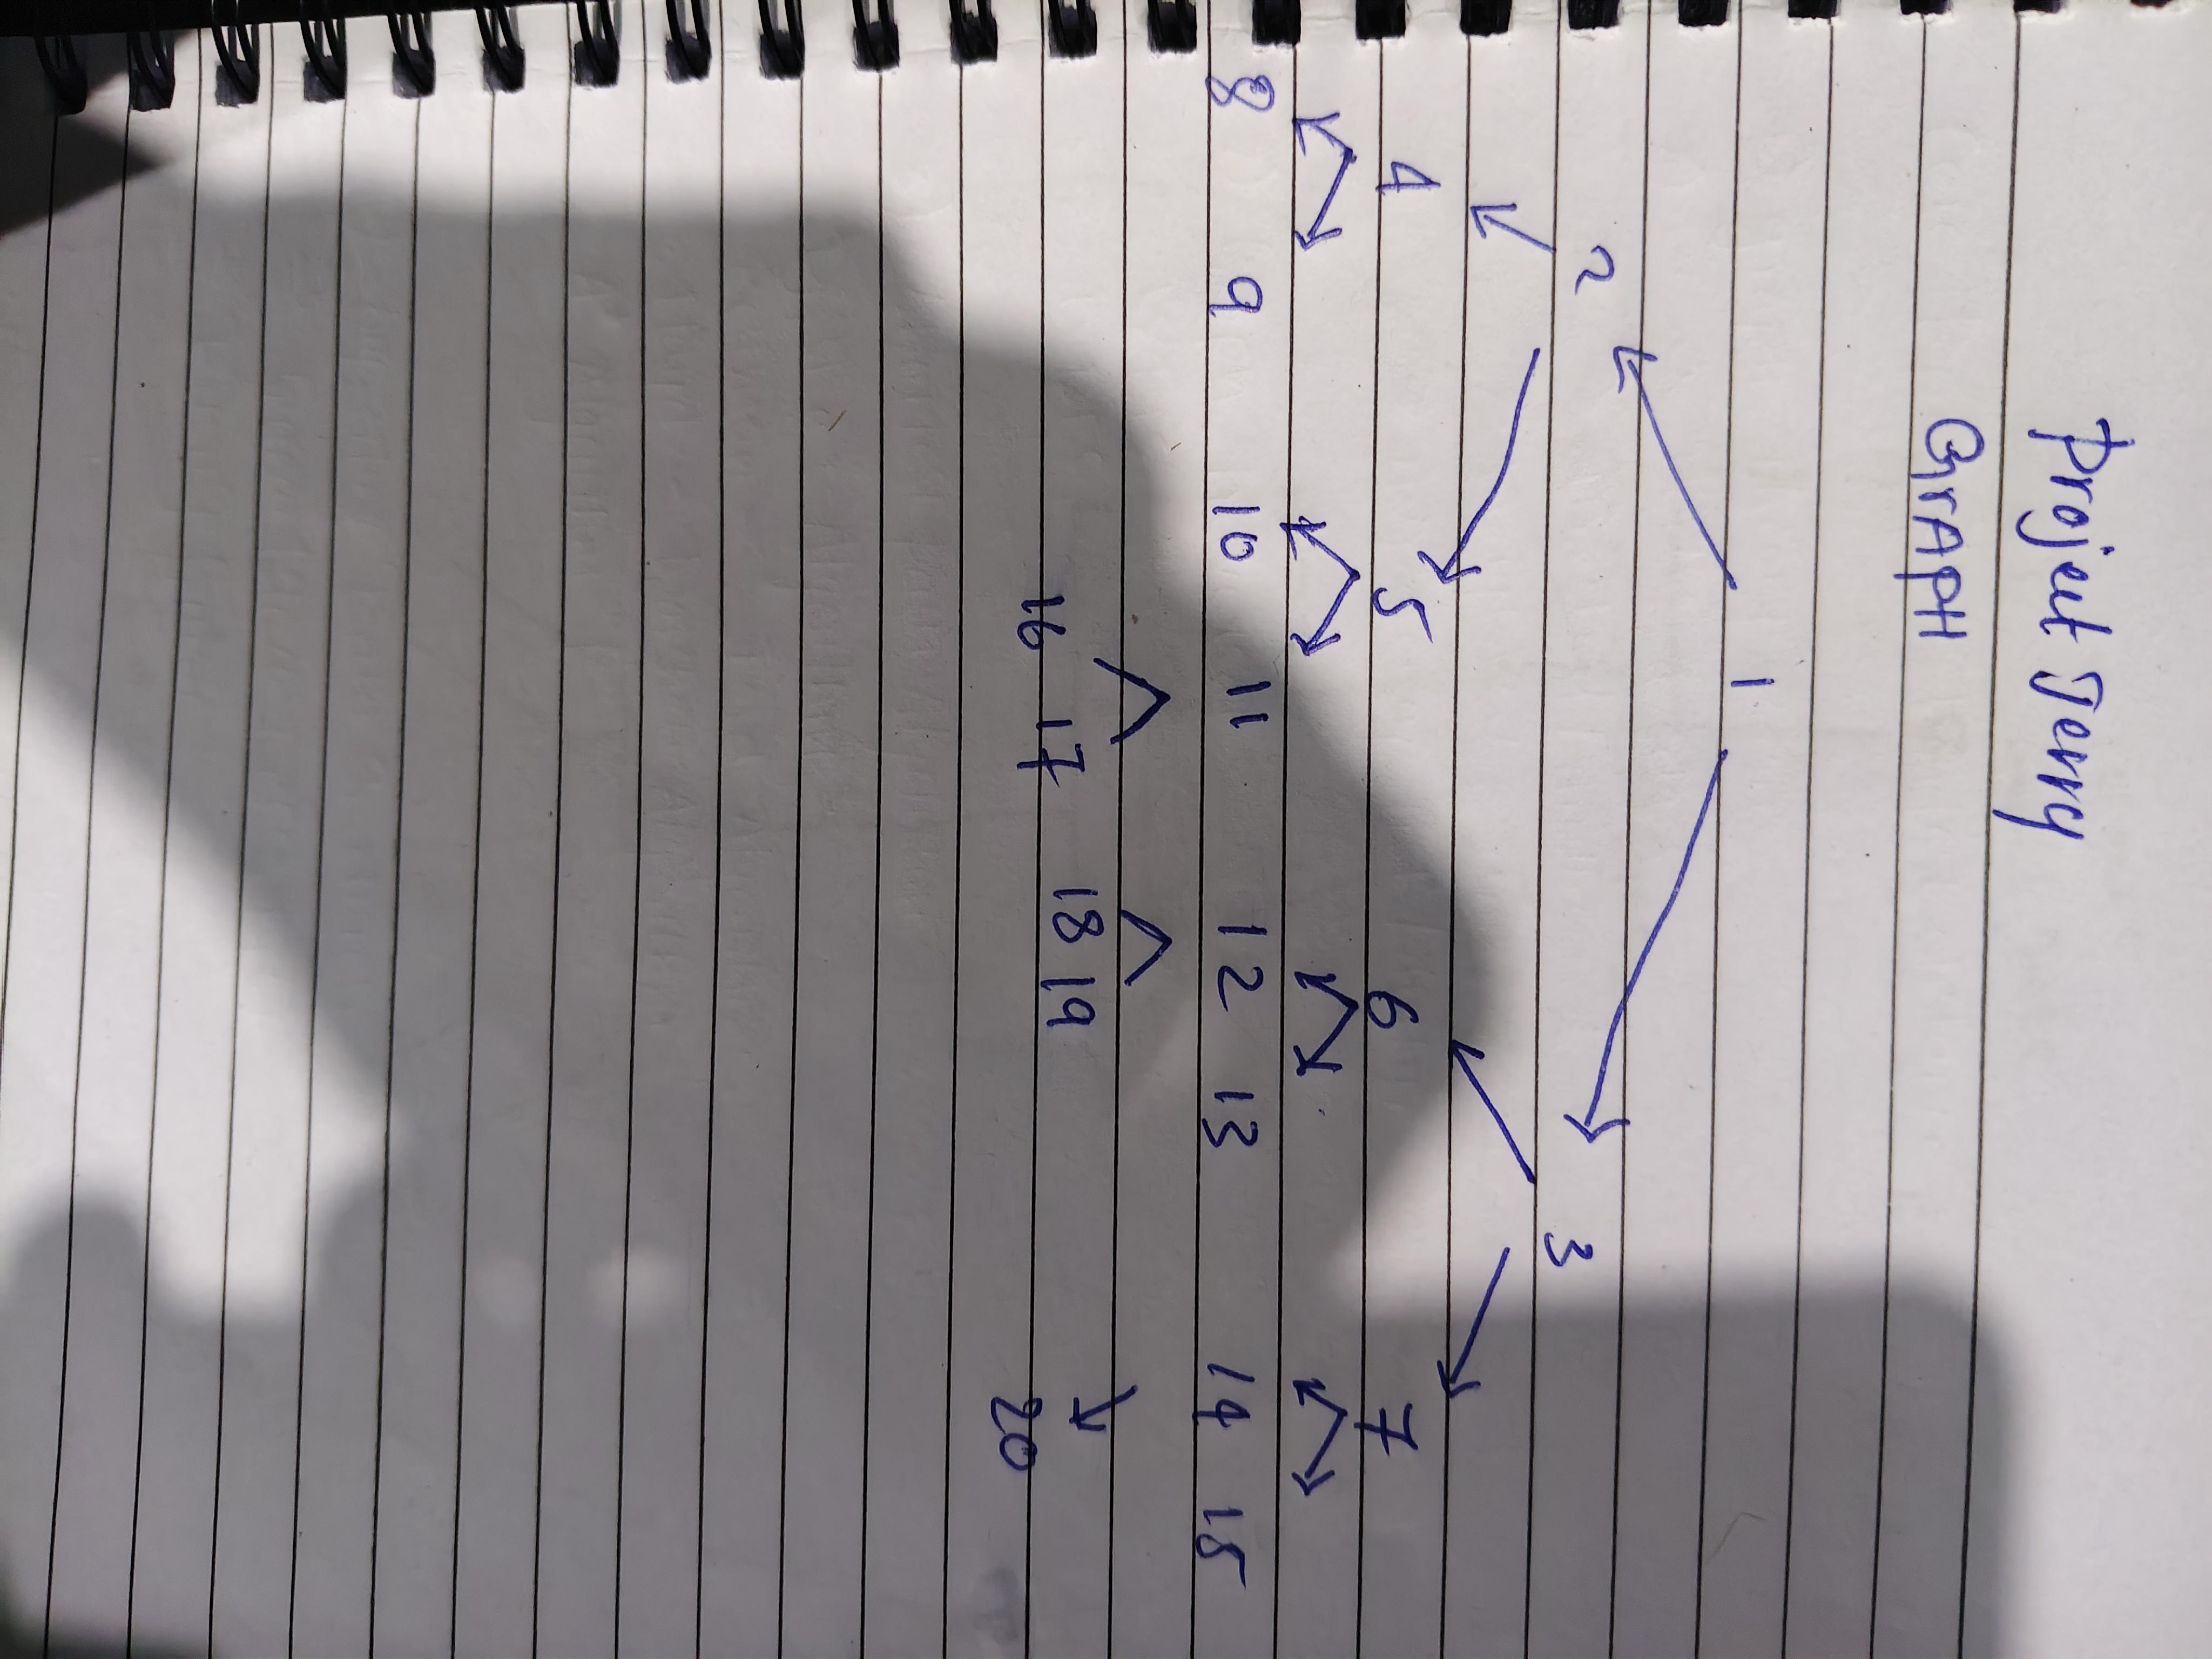 Project Jerry
GrAPH
1
2 3
4 5 6 7
8 9 10 11 12 13 14 15
16 17 18 19 20